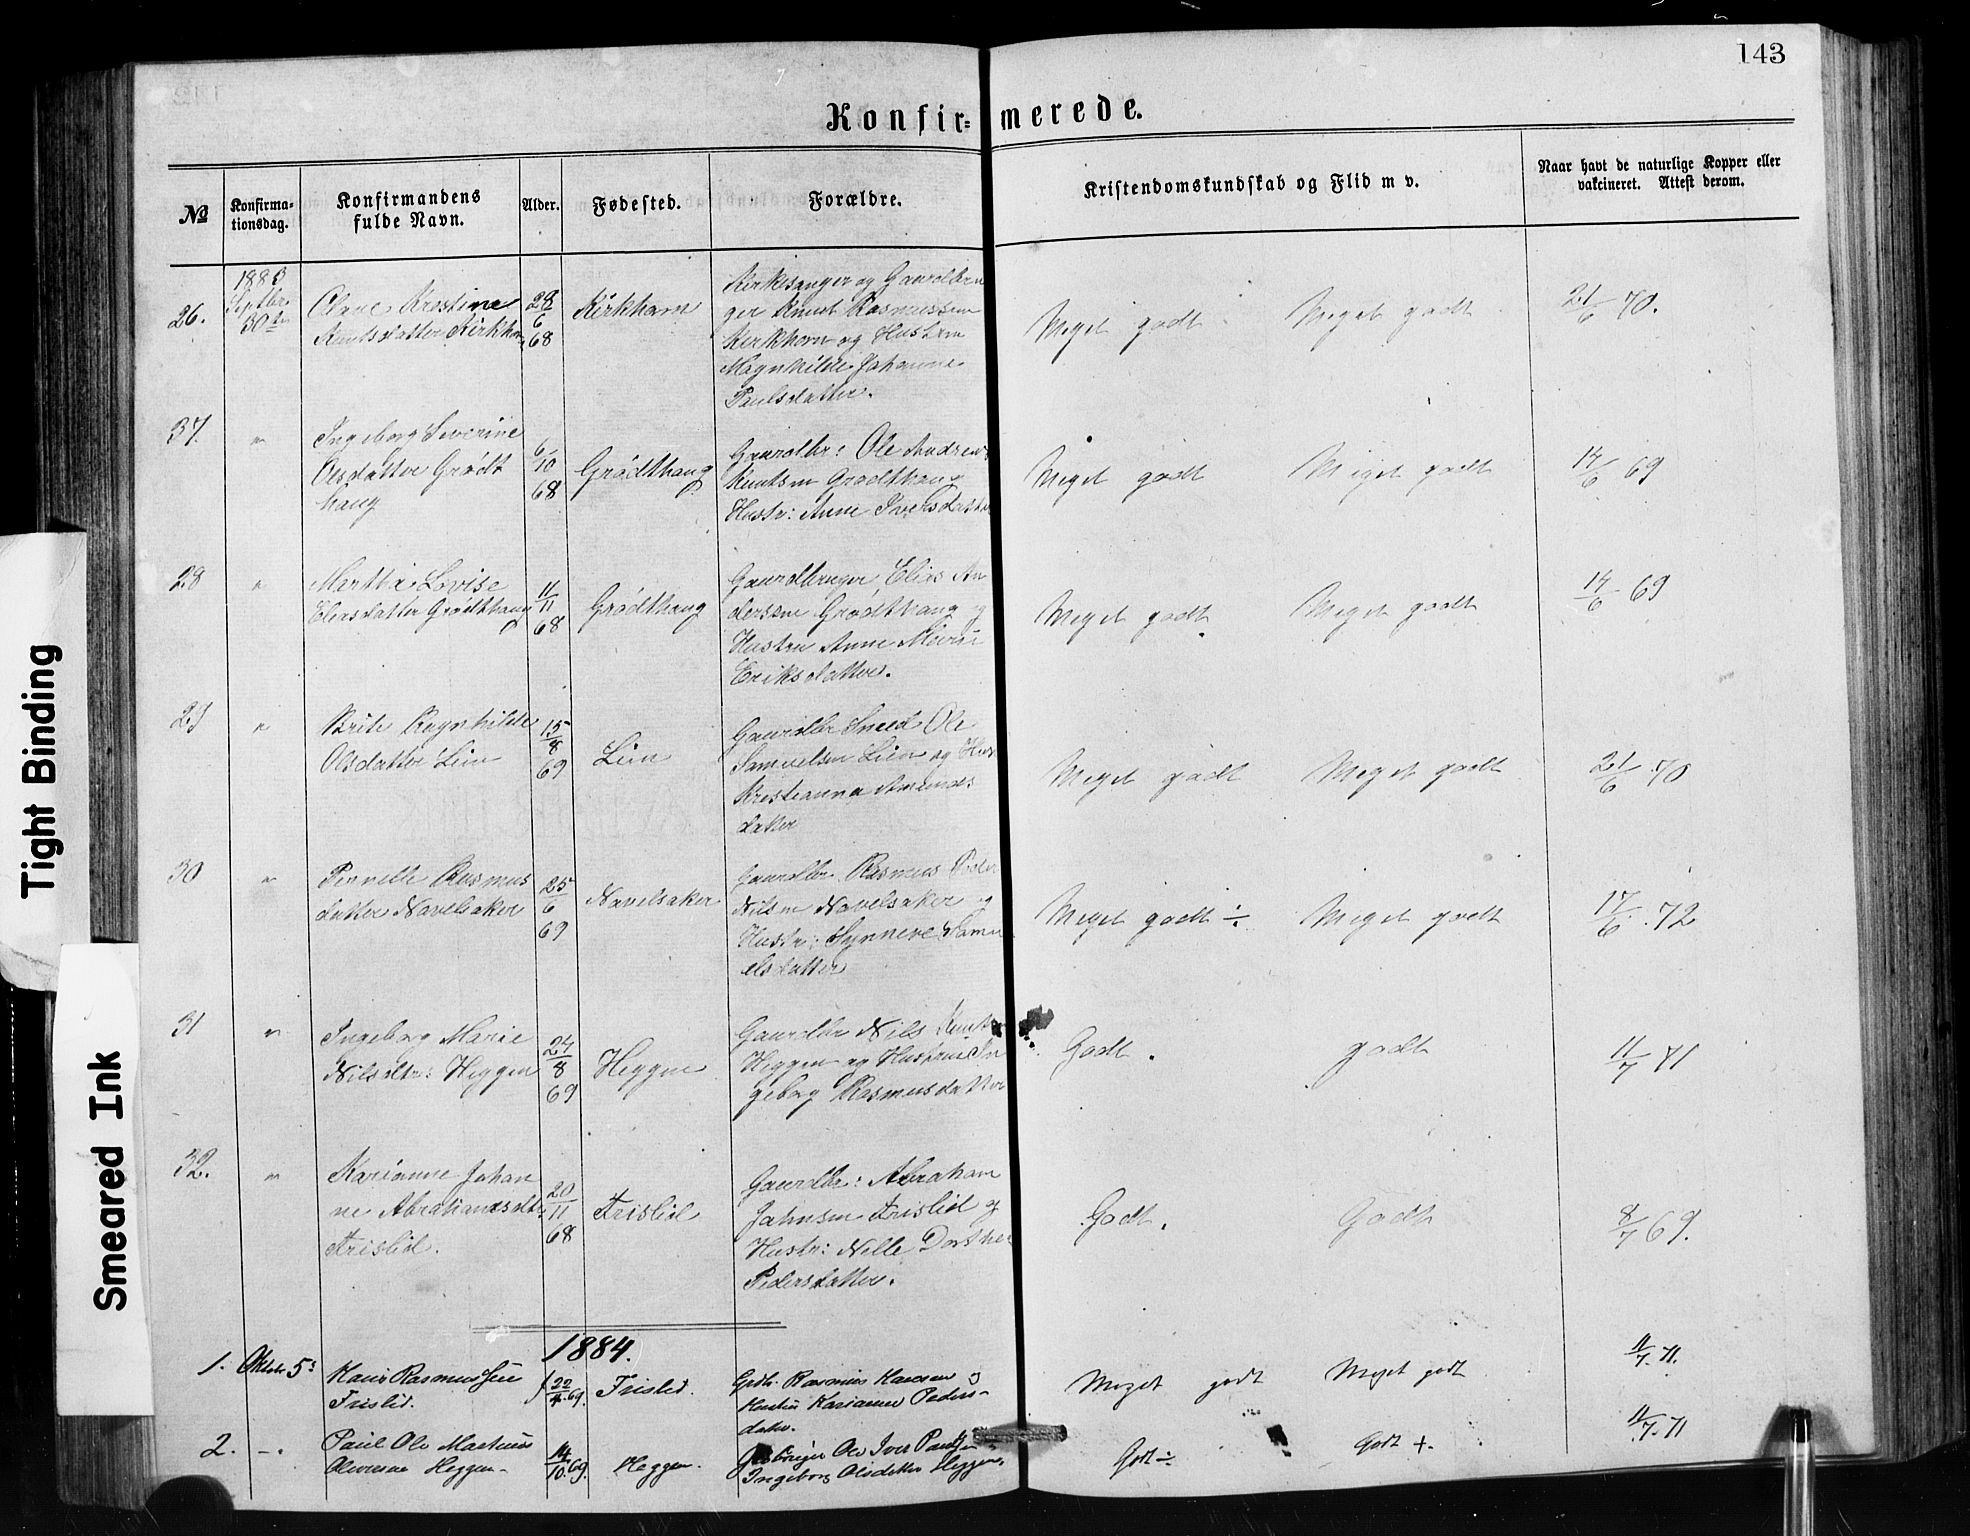 143
Konfir=merede.
No
Konfirma-
tionsdag.
Konfirmandens
fulde Navn.
Alder.
Fødested.
Forældre.
Kristendomskundskab og Flid m v.
Naar havt de naturlige Kopper eller
vakcineret. Attest derom.
1883
Septbr
30te
26.
Knutsdatter Kirkho
28/6 68
Kirkhorn
Kirkesanger og Gaardbru
ger Knud Rasmussen
Kirkhorn og Hustru
Magnhilde Johanne
Paulsdatter.
Meget godt
Meget godt
21/6 70.
37.
"
Ingeborg Severine
Olsdatter Grødt
haug
6/10 68
Grødthaug
Gaardbr: Ole Andreas
Knutsen Grødthaug
Hustr: Anne Iversdatter
Meget godt
Meget godt
14/6 69
28
"
Martha Lovise
Eliasdatter Grødthaug
11/11 68
Grødthaug
Gaardbruger Elias An
dersen Grødthaug og
Hustru Anne Marie
Eriksdatter.
Meget godt
Meget godt
14/6 69
29
"
Brite Ragnhilde
Olsdatter Lien
15/8 69
Lien
Gaardbr Smed Ole
Samuelsen Lien og Hus
Kristianna Amunds
datter
Meget godt
Meget godt
21/6 70
30
"
Pernelle Rasmus
datter Navelsaker
25/6 69
Navelsaker
Gaardbr Rasmus Peder
Nilsen Navelsaker og
Hustr: Synneve Samu
elsdatter
Meget godt ÷
Meget godt
17/6. 72
31
"
Ingeborg Marie
Nilsdtr: Heggen
24/8 69
Heggen
Gaardbr Nils Knuts
Heggen og Hustrue In
geborg Rasmusdatter
Godt.
godt
11/7 71
32.
"
Karianne Johan
ne Abrahamsdtr
Frislid.
20/11 68
Frislid
Gaardbr: Abraham
Johnsen Frislid og
Hustr: Nille Dorthea
Pedersdatter.
Godt.
Godt
8/7 69.
1884.
1.
Oktbr. 5.
Hans Rasmussen
Frislid.
22/4 69.
Frislid.
Grdbr. Rasmus Hansen og
Hustru Karianne Peders-
datter.
Meget godt
Meget godt
11/7. 71.
2.
- "
Paul Ole Martinus
Oliversen Heggen-
14/10 69.
Heggen.
Ole Iver Paulsen
Ingeborg Olsdatter Heggen.
Godt ÷
Godt +.
11/7. 71
Tight Binding
Smeared Ink